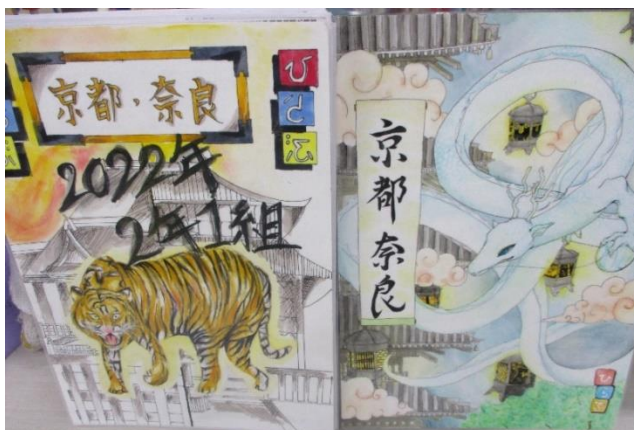 京都・奈良
2022年
2年1組
京都奈良